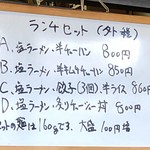 ランチセット(タレ 種)
A. 塩ラーメン・半チャーハン 800円
B. 塩ラーメン・半キムチチャーハン 850円
C. 塩ラーメン・餃子(3個)・半ライス 860円
D. 塩ラーメン・チャーシュー丼 900円
セットの麺は160gです、大盛100円増